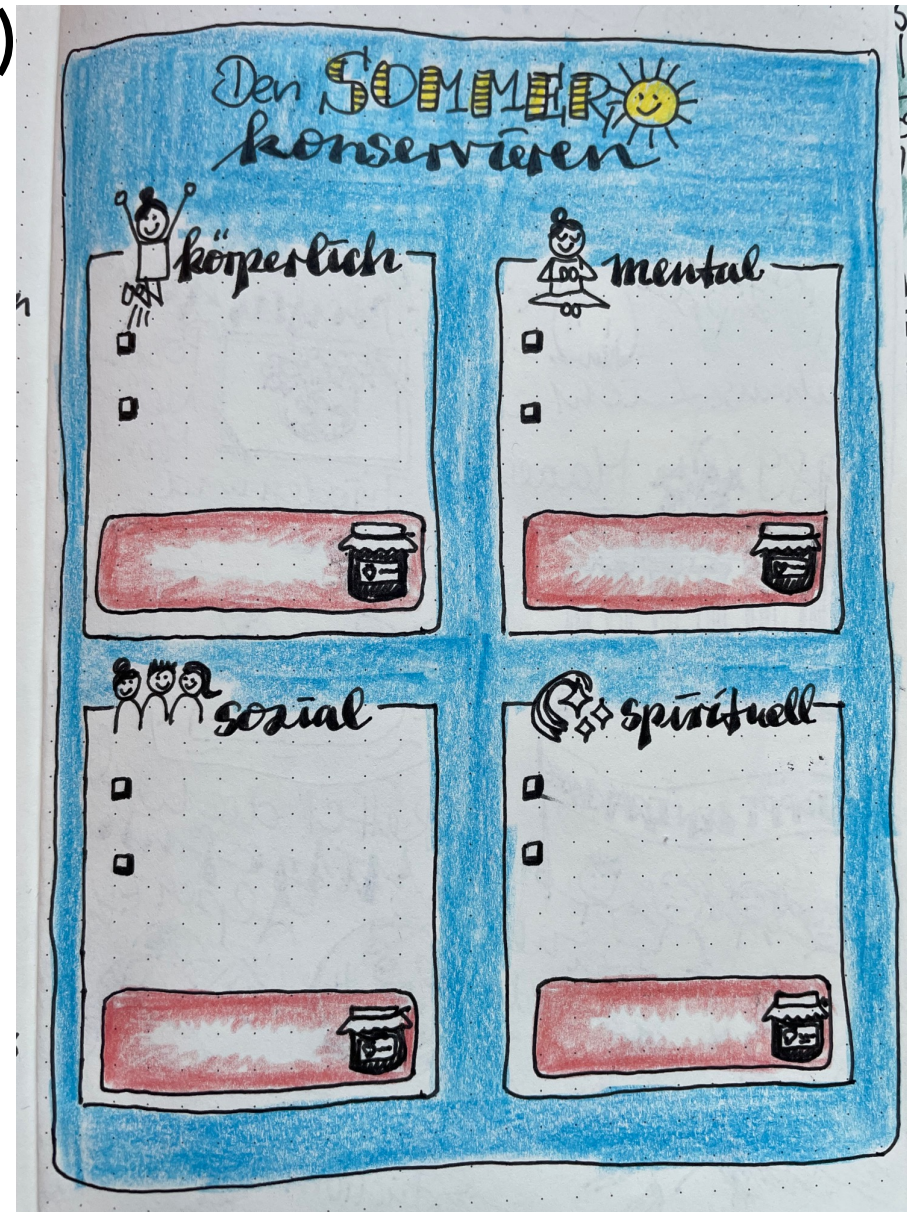 )
Den SOMMER
konservieren
körperlich
mental
sozial
spirituell